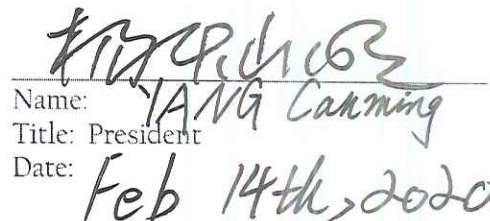 Name: YANG Canming
Title: President
Date: Feb 14th, 2020